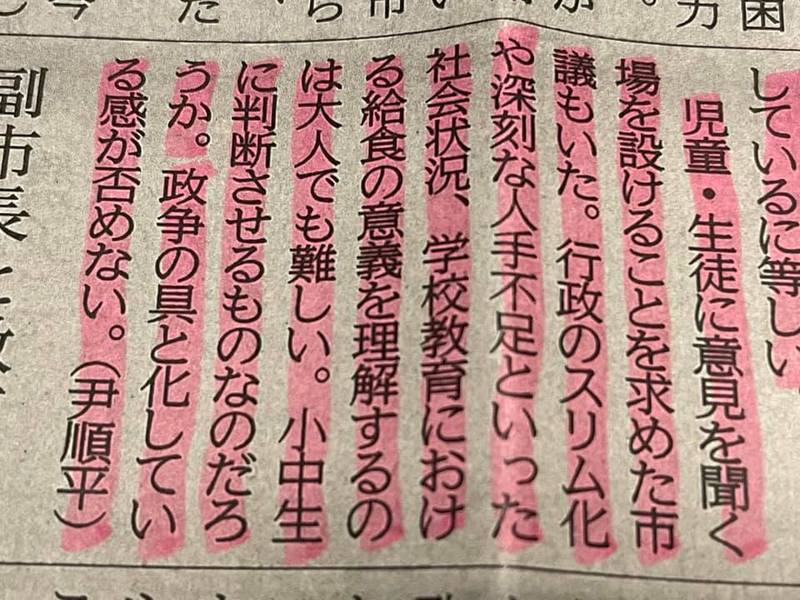 しているに等しい
児童・生徒に意見を聞く
場を設けることを求めた市
議もいた。行政のスリム化
や深刻な人手不足といった
社会状況、学校教育におけ
る給食の意義を理解するの
は大人でも難しい。小中生
に判断させるものなのだろ
うか。政争の具と化してい
る感が否めない。（尹順平）
副市長と